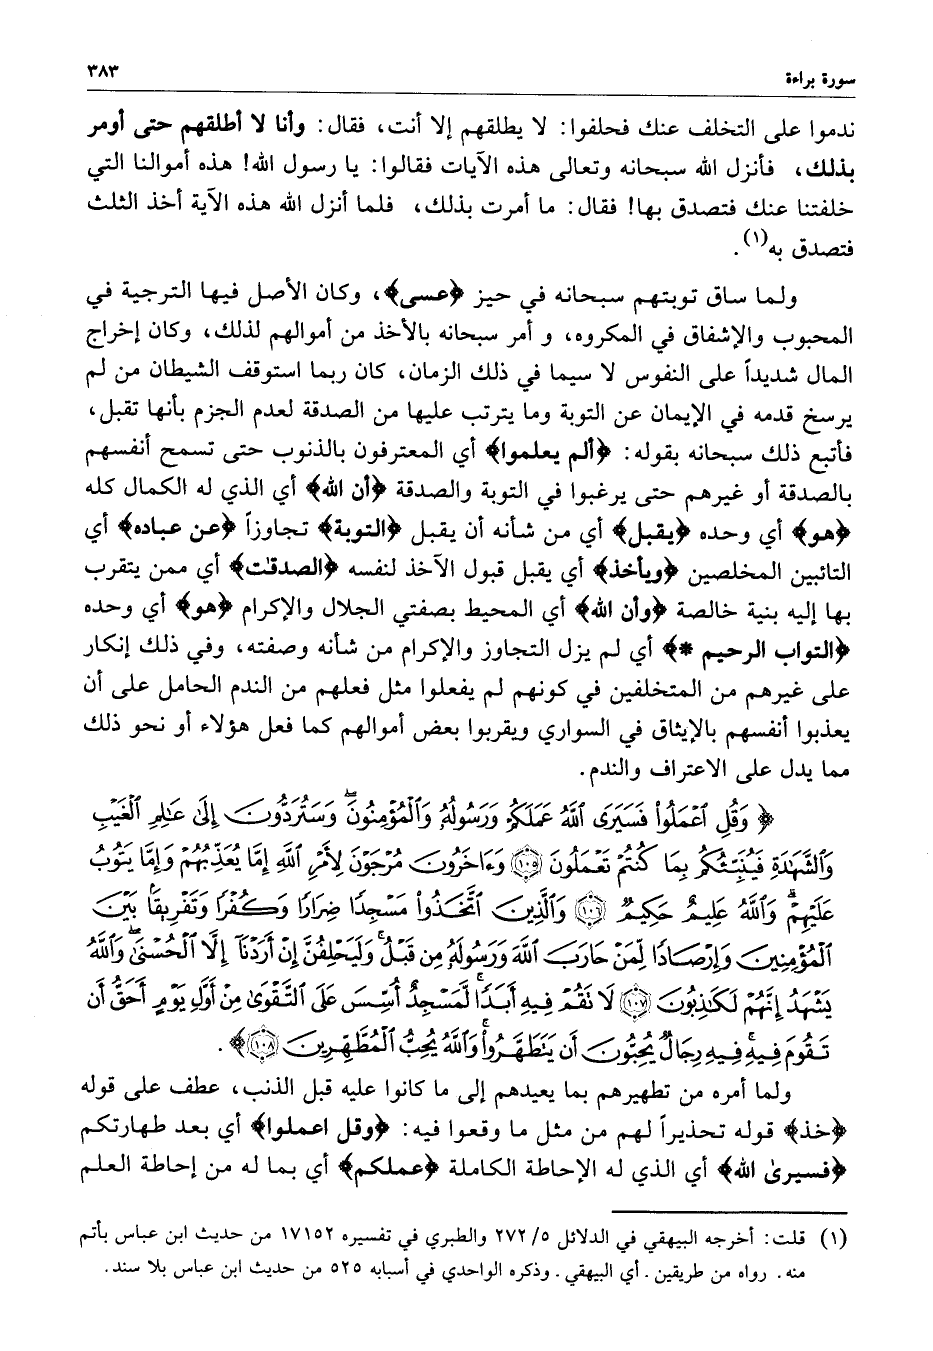 سورة براءة
٣٨٣
ندموا على التخلف عنك فحلفوا: لا يطلقهم إلا أنت، فقال: وأنا لا أطلقهم حتى أومر
بذلك، فأنزل الله سبحانه وتعالى هذه الآيات فقالوا: يا رسول الله! هذه أموالنا التي
خلفتنا عنك فتصدق بها! فقال: ما أمرت بذلك، فلما أنزل الله هذه الآية أخذ الثلث
فتصدق به(١).
ولما ساق توبتهم سبحانه في حيز ﴿عسى﴾، وكان الأصل فيها الترجية في
المحبوب والإشفاق في المكروه، و أمر سبحانه بالأخذ من أموالهم لذلك، وكان إخراج
المال شديداً على النفوس لا سيما في ذلك الزمان، كان ربما استوقف الشيطان من لم
يرسخ قدمه في الإيمان عن التوبة وما يترتب عليها من الصدقة لعدم الجزم بأنها تقبل،
فأتبع ذلك سبحانه بقوله: ﴿ألم يعلموا﴾ أي المعترفون بالذنوب حتى تسمح أنفسهم
بالصدقة أو غيرهم حتى يرغبوا في التوبة والصدقة ﴿أن الله﴾ أي الذي له الكمال كله
﴿هو﴾ أي وحده ﴿يقبل﴾ أي من شأنه أن يقبل ﴿التوبة﴾ تجاوزاً ﴿عن عباده﴾ أي
التائبين المخلصين ﴿ويأخذ﴾ أي يقبل قبول الآخذ لنفسه ﴿الصدقٰت﴾ أي ممن يتقرب
بها إليه بنية خالصة ﴿وأن الله﴾ أي المحيط بصفتي الجلال والإكرام ﴿هو﴾ أي وحده
﴿التواب الرحيم *﴾ أي لم يزل التجاوز والإكرام من شأنه وصفته، وفي ذلك إنكار
على غيرهم من المتخلفين في كونهم لم يفعلوا مثل فعلهم من الندم الحامل على أن
يعذبوا أنفسهم بالإيثاق في السواري ويقربوا بعض أموالهم كما فعل هؤلاء أو نحو ذلك
مما يدل على الاعتراف والندم.
﴿ وَقُلِ ٱعْمَلُوا۟ فَسَيَرَى ٱللَّهُ عَمَلَكُمْ وَرَسُولُهُۥ وَٱلْمُؤْمِنُونَ ۖ وَسَتُرَدُّونَ إِلَىٰ عَٰلِمِ ٱلْغَيْبِ
وَٱلشَّهَٰدَةِ فَيُنَبِّئُكُم بِمَا كُنتُمْ تَعْمَلُونَ ١٠٥ وَءَاخَرُونَ مُرْجَوْنَ لِأَمْرِ ٱللَّهِ إِمَّا يُعَذِّبُهُمْ وَإِمَّا يَتُوبُ
عَلَيْهِمْ ۗ وَٱللَّهُ عَلِيمٌ حَكِيمٌ ١٠٦ وَٱلَّذِينَ ٱتَّخَذُوا۟ مَسْجِدًا ضِرَارًا وَكُفْرًا وَتَفْرِيقًۢا بَيْنَ
ٱلْمُؤْمِنِينَ وَإِرْصَادًا لِّمَنْ حَارَبَ ٱللَّهَ وَرَسُولَهُۥ مِن قَبْلُ ۚ وَلَيَحْلِفُنَّ إِنْ أَرَدْنَآ إِلَّا ٱلْحُسْنَىٰ ۖ وَٱللَّهُ
يَشْهَدُ إِنَّهُمْ لَكَٰذِبُونَ ١٠٧ لَا تَقُمْ فِيهِ أَبَدًا ۚ لَّمَسْجِدٌ أُسِّسَ عَلَى ٱلتَّقْوَىٰ مِنْ أَوَّلِ يَوْمٍ أَحَقُّ أَن
تَقُومَ فِيهِ ۚ فِيهِ رِجَالٌ يُحِبُّونَ أَن يَتَطَهَّرُوا۟ ۚ وَٱللَّهُ يُحِبُّ ٱلْمُطَّهِّرِينَ ١٠٨ ﴾.
ولما أمره من تطهيرهم بما يعيدهم إلى ما كانوا عليه قبل الذنب، عطف على قوله
﴿خذ﴾ قوله تحذيراً لهم من مثل ما وقعوا فيه: ﴿وقل اعملوا﴾ أي بعد طهارتكم
﴿فسيرىٰ الله﴾ أي الذي له الإحاطة الكاملة ﴿عملكم﴾ أي بما له من إحاطة العلم
(١) قلت: أخرجه البيهقي في الدلائل ٥/ ٢٧٢ والطبري في تفسيره ١٧١٥٢ من حديث ابن عباس بأتم
منه. رواه من طريقين. أي البيهقي. وذكره الواحدي في أسبابه ٥٢٥ من حديث ابن عباس بلا سند.